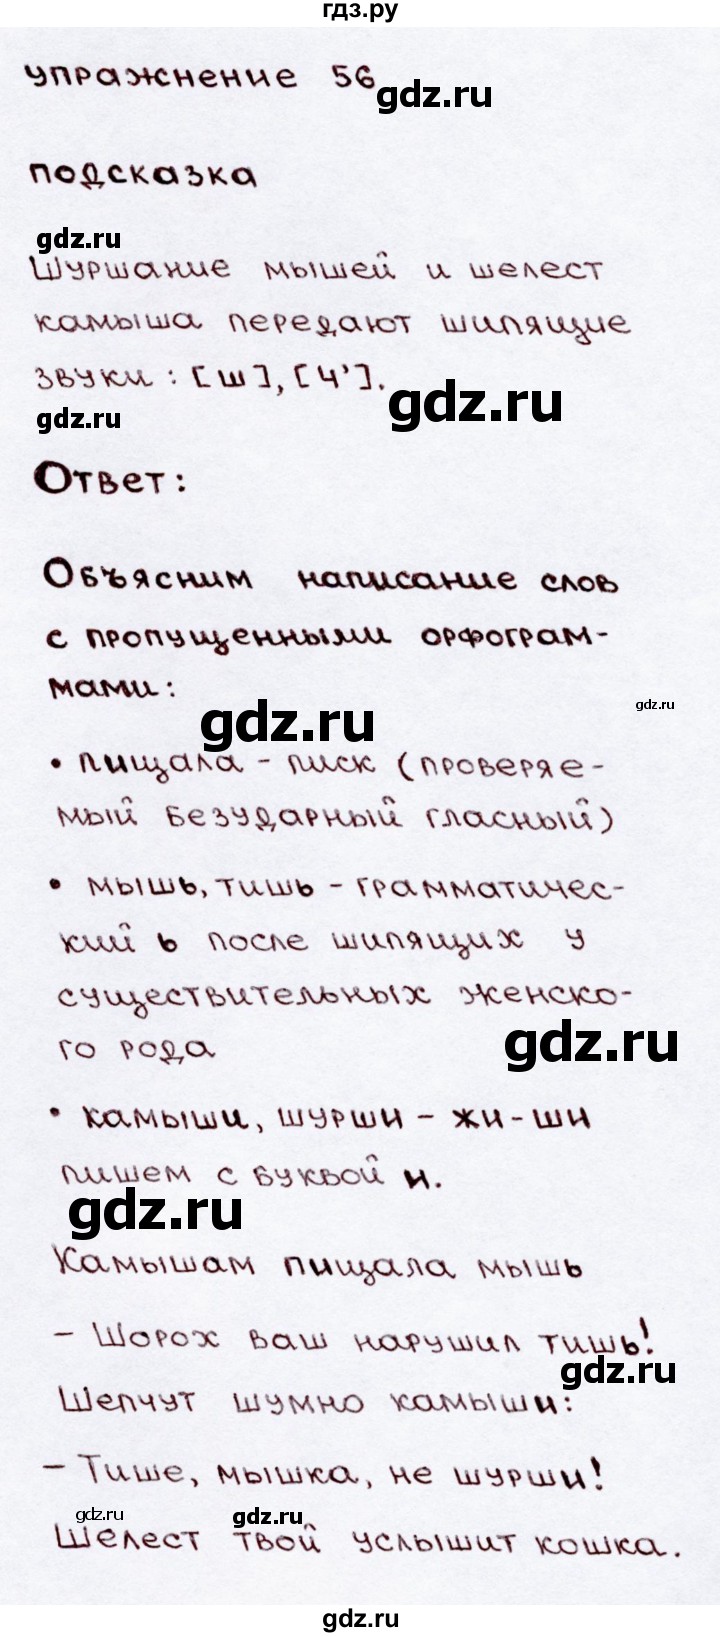 гдз.ру
упражнение 56
gdz.ru
подсказка
gdz.ru
Шуршание мышей и шелест
камыша передают шипящие
звуки: [ш], [ч'].
gdz.ru
gdz.ru
Ответ:
Объясним написание слов
с пропущенными орфограм-
мами:
gdz.ru
gdz.ru
• пищала - писк (проверяе-
мый безударный гласный)
• мышь, тишь - грамматичес-
кий ь после шипящих у
существительных женско-
го рода
gdz.ru
• камыши, шурши - жи-ши
пишем с буквой и.
gdz.ru
Камышам пищала мышь
- Шорох ваш нарушил тишь!
gdz.ru
Шепчут шумно камыши:
- Тише, мышка, не шурши!
gdz.ru
gdz.ru
Шелест твой услышит кошка.
gdz.ru